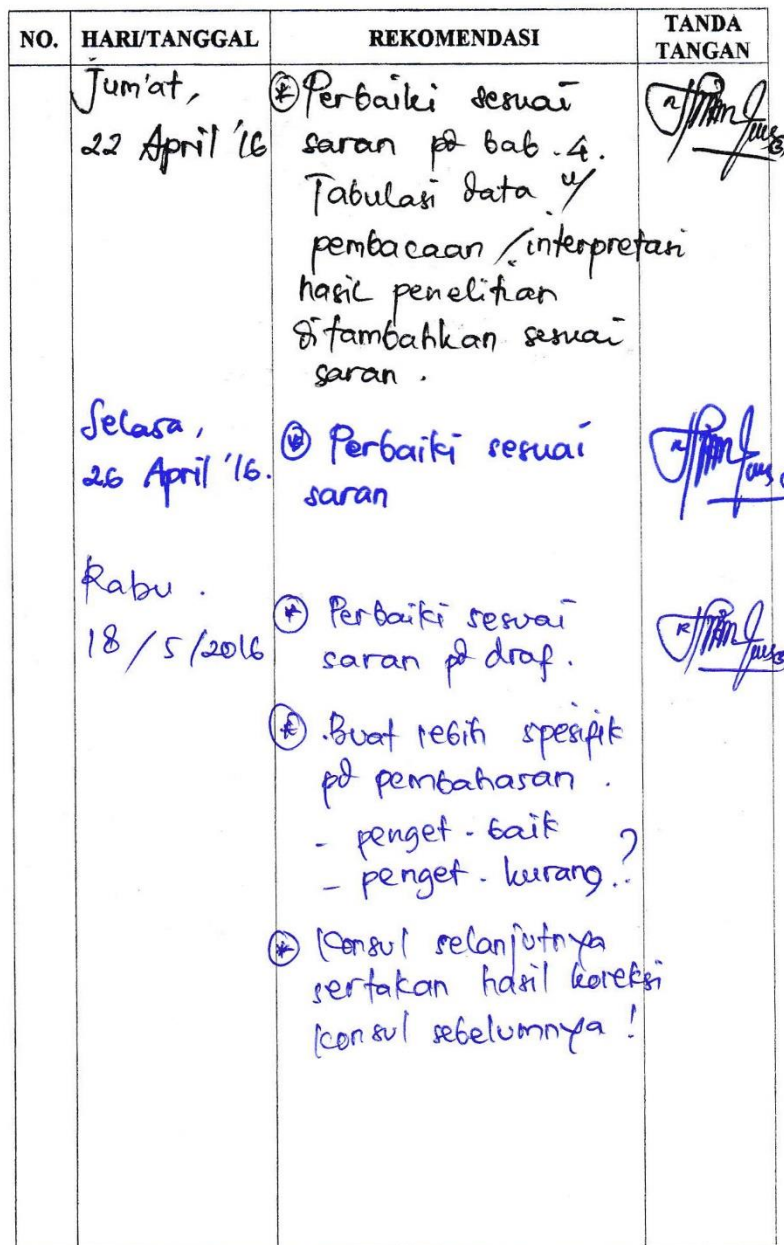 NO.
HARI/TANGGAL
REKOMENDASI
TANDA
TANGAN
Jum'at,
22 April '16
* Perbaiki sesuai
saran pd bab. 4.
Tabulasi data u/
pembacaan / interpretasi
hasil penelitian
ditambahkan sesuai
saran.
Selasa,
26 April '16.
* Perbaiki sesuai
saran
Rabu.
18/5/2016
* Perbaiki sesuai
saran pd draf.
* Buat lebih spesifik
pd pembahasan.
- penget. baik
- penget. kurang ?
* Konsul selanjutnya
sertakan hasil koreksi
konsul sebelumnya!